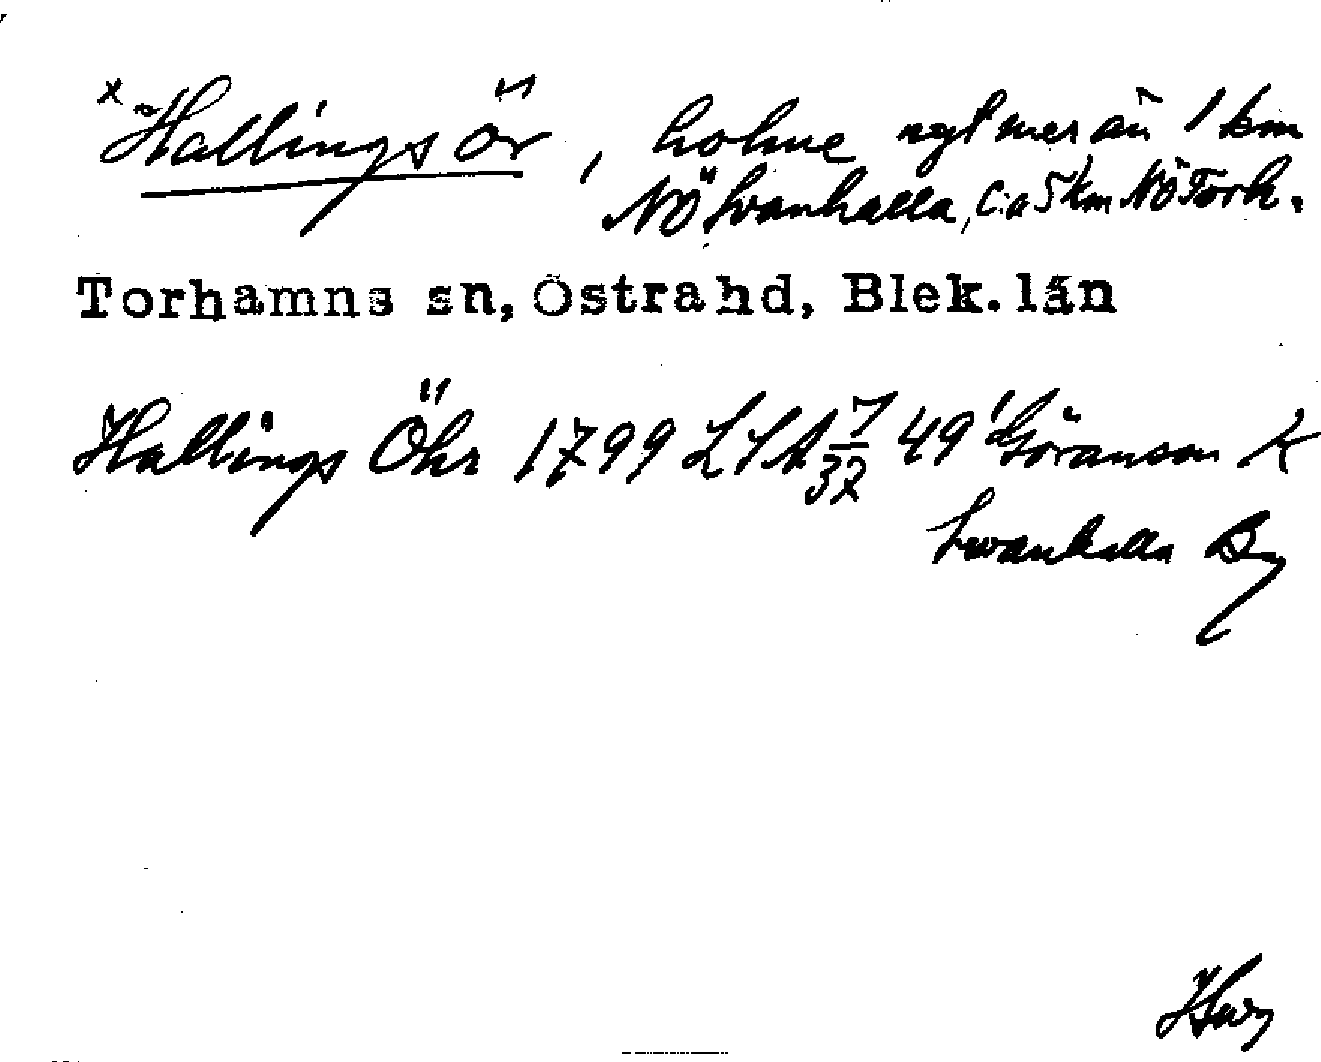 x Hallings ör, holme ngt mer än 1 km
NÖ Svanhalla, c:a 5 km NÖ Torh.
Torhamns sn, Östra hd, Blek. län
Hallings Öhr 1799 LSA 7/32 49 Göranson K
Swanhalla By